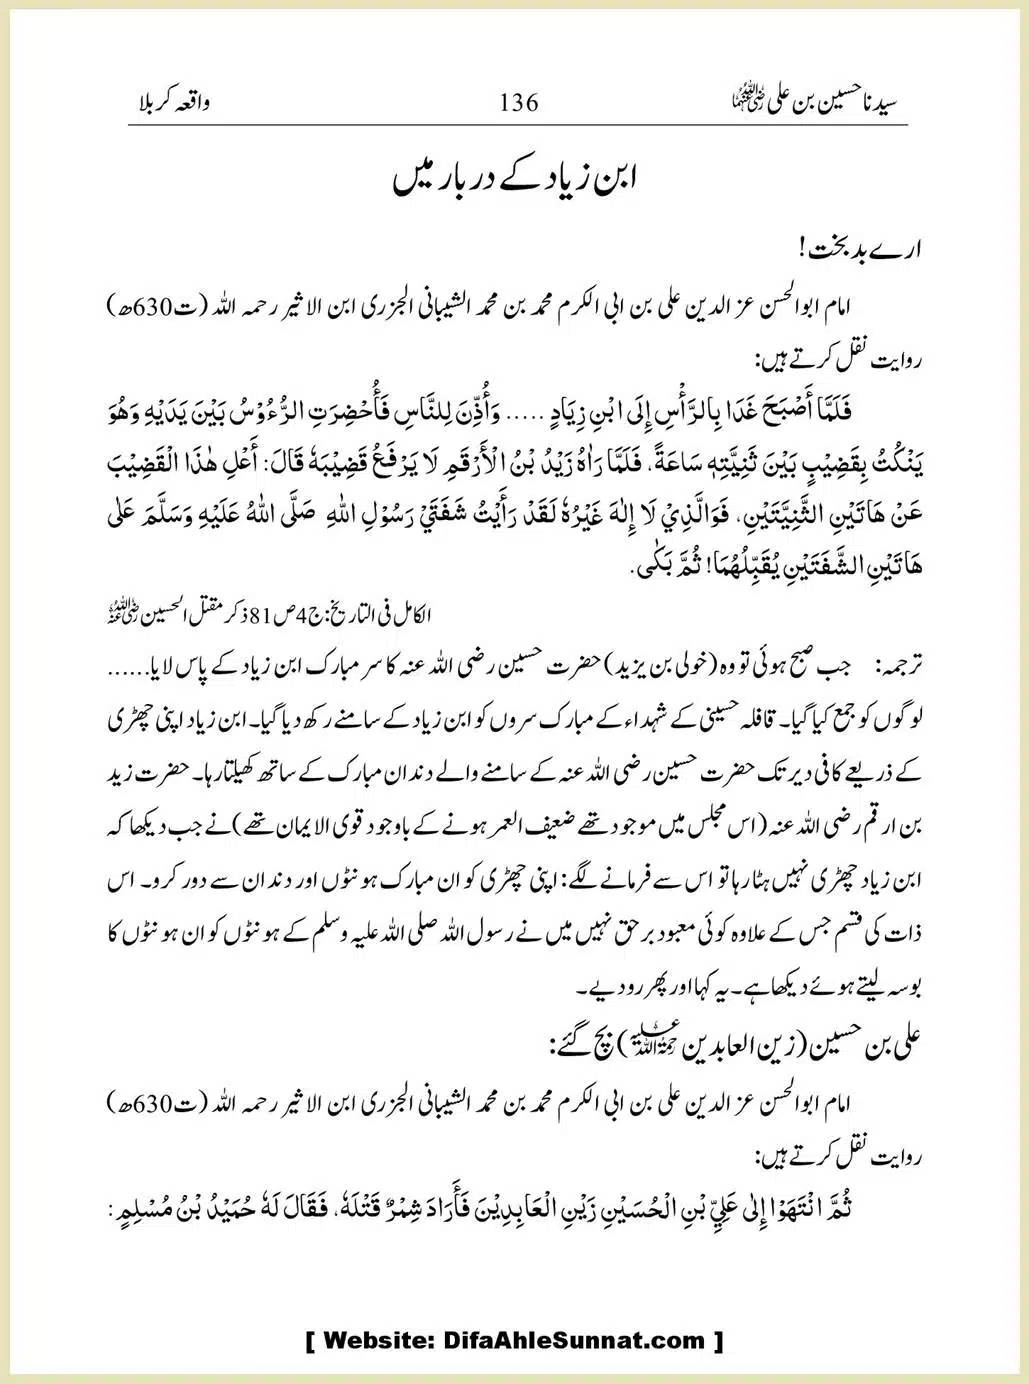 سیدنا حسین بن علی رضی اللہ عنہما 136 واقعہ کربلا
ابن زیاد کے دربار میں
ارے بدبخت!
امام ابوالحسن عز الدین علی بن ابی الکرم محمد بن محمد الشیبانی الجزری ابن الاثیر رحمہ اللہ (ت630ھ)
روایت نقل کرتے ہیں:
فَلَمَّا أَصْبَحَ غَدَا بِالرَّأْسِ إِلَى ابْنِ زِيَادٍ ..... وَأُذِّنَ لِلنَّاسِ فَأُحْضِرَتِ الرُّءُوْسُ بَيْنَ يَدَيْهِ وَهُوَ
يَنْكُتُ بِقَضِيْبٍ بَيْنَ ثَنِيَّتِهٖ سَاعَةً، فَلَمَّا رَاٰهُ زَيْدُ بْنُ الْأَرْقَمِ لَا يَرْفَعُ قَضِيْبَهٗ قَالَ: أَعْلِ هٰذَا الْقَضِيْبَ
عَنْ هَاتَيْنِ الثَّنِيَّتَيْنِ، فَوَالَّذِيْ لَا إِلٰهَ غَيْرُهٗ لَقَدْ رَأَيْتُ شَفَتَيْ رَسُوْلِ اللهِ صَلَّى اللهُ عَلَيْهِ وَسَلَّمَ عَلٰى
هَاتَيْنِ الشَّفَتَيْنِ يُقَبِّلُهُمَا! ثُمَّ بَكٰى.
الکامل فی التاریخ: ج4ص81 ذکر مقتل الحسین رضی اللہ عنہ
ترجمہ: جب صبح ہوئی تو وہ (خولی بن یزید) حضرت حسین رضی اللہ عنہ کا سر مبارک ابن زیاد کے پاس لایا......
لوگوں کو جمع کیا گیا۔ قافلہ حسینی کے شہداء کے مبارک سروں کو ابن زیاد کے سامنے رکھ دیا گیا۔ ابن زیاد اپنی چھڑی
کے ذریعے کافی دیر تک حضرت حسین رضی اللہ عنہ کے سامنے والے دندان مبارک کے ساتھ کھیلتا رہا۔ حضرت زید
بن ارقم رضی اللہ عنہ (اس مجلس میں موجود تھے ضعیف العمر ہونے کے باوجود قوی الایمان تھے) نے جب دیکھا کہ
ابن زیاد چھڑی نہیں ہٹا رہا تو اس سے فرمانے لگے: اپنی چھڑی کو ان مبارک ہونٹوں اور دندان سے دور کرو۔ اس
ذات کی قسم جس کے علاوہ کوئی معبود برحق نہیں میں نے رسول اللہ صلی اللہ علیہ وسلم کے ہونٹوں کو ان ہونٹوں کا
بوسہ لیتے ہوئے دیکھا ہے۔ یہ کہا اور پھر رو دیے۔
علی بن حسین (زین العابدین رحمۃ اللہ علیہ) بچ گئے:
امام ابوالحسن عز الدین علی بن ابی الکرم محمد بن محمد الشیبانی الجزری ابن الاثیر رحمہ اللہ (ت630ھ)
روایت نقل کرتے ہیں:
ثُمَّ انْتَهَوْا إِلٰى عَلِيِّ بْنِ الْحُسَيْنِ زَيْنِ الْعَابِدِيْنَ فَأَرَادَ شِمْرٌ قَتْلَهٗ، فَقَالَ لَهٗ حُمَيْدُ بْنُ مُسْلِمٍ:
[ Website: DifaAhleSunnat.com ]